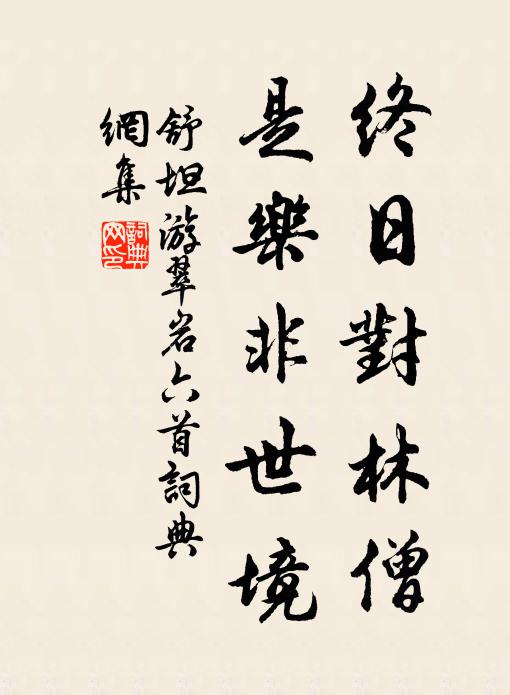 終日對林僧
是樂非世境
舒坦游翠岩六首詞典
網集
詞典
网印